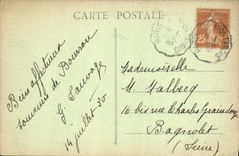 CARTE POSTALE
25
Bien affectueux
souvenir de Bourron
G. Sauvage
14 juillet 30
Mademoiselle
M. Malbecq
16 bis rue Charles Graindorge
Bagnolet
(Seine)